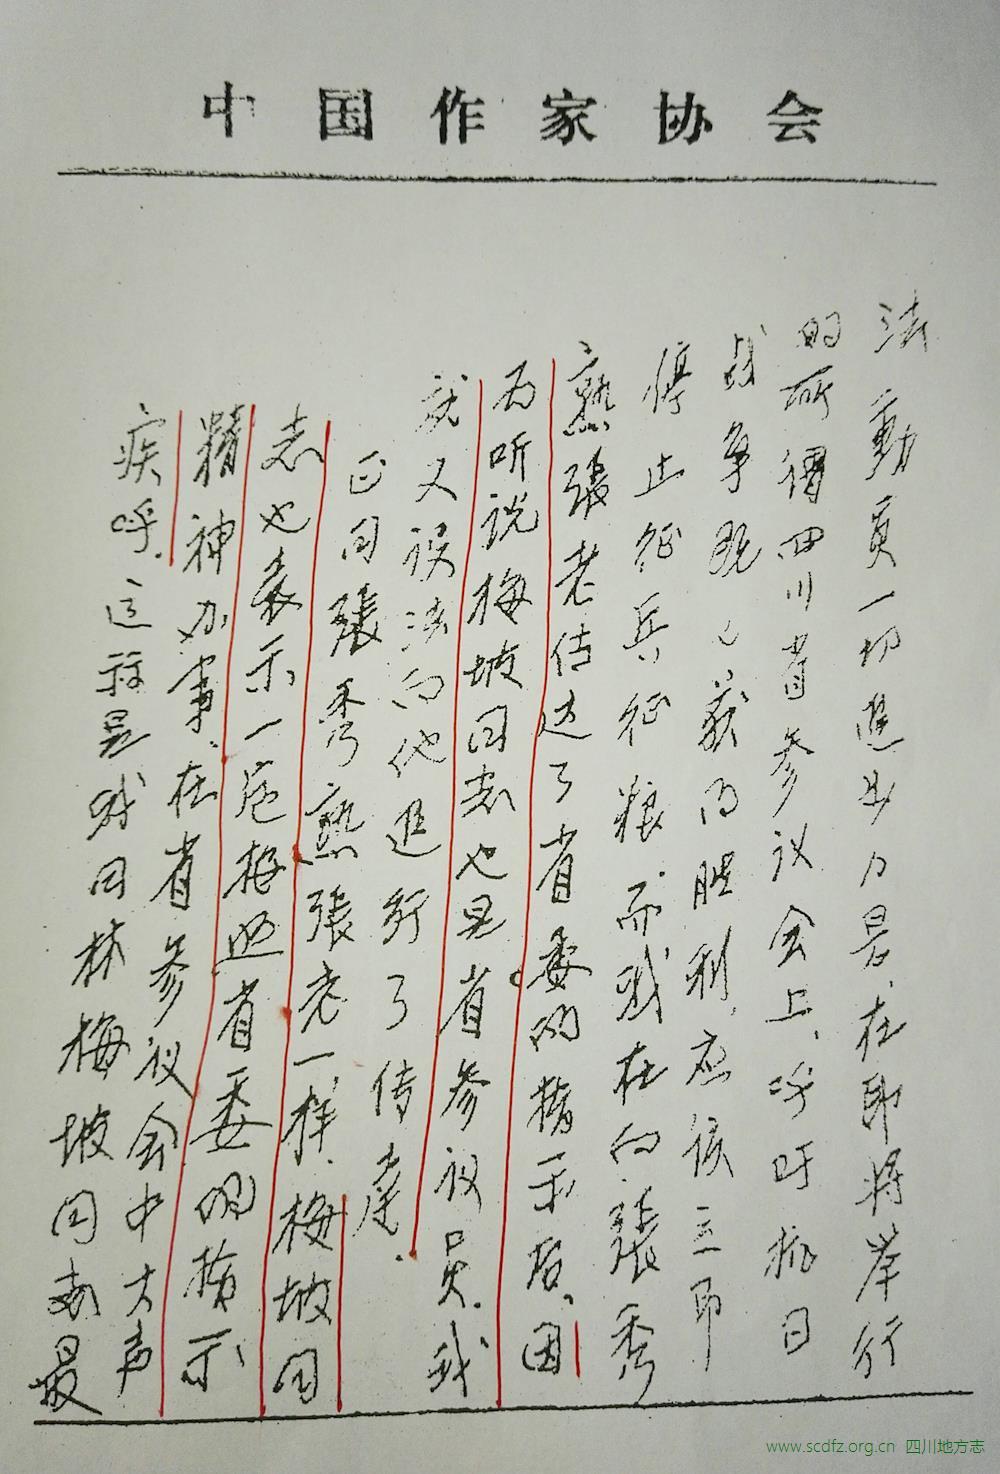 中国作家协会
法动员一切进步力量,在即将举行
的所谓四川省参议会上,呼吁抗日
战争既已获得胜利,应该立即
停止征兵征粮。而我在向張秀
熟張老传达了省委的指示后,因
为听说梅坡同志也是省参议员,我
就又设法向他进行了传达。
正同張秀熟張老一样,梅坡同
志也表示一定按照省委的指示
精神办事,在省参议会中大声
疾呼。这就是我同林梅坡同志最
www.scdfz.org.cn 四川地方志